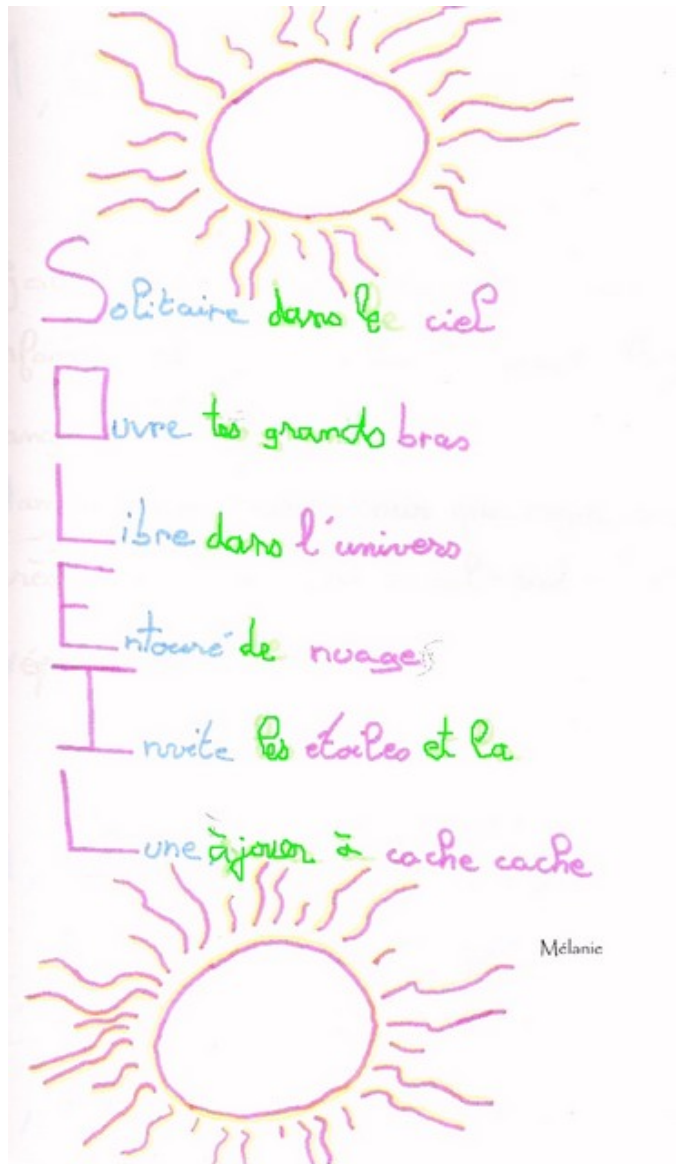 Solitaire dans le ciel
Ouvre tes grands bras
Libre dans l'univers
Entouré de nuages
Invite les étoiles et la
Lune à jouer à cache cache
Mélanie